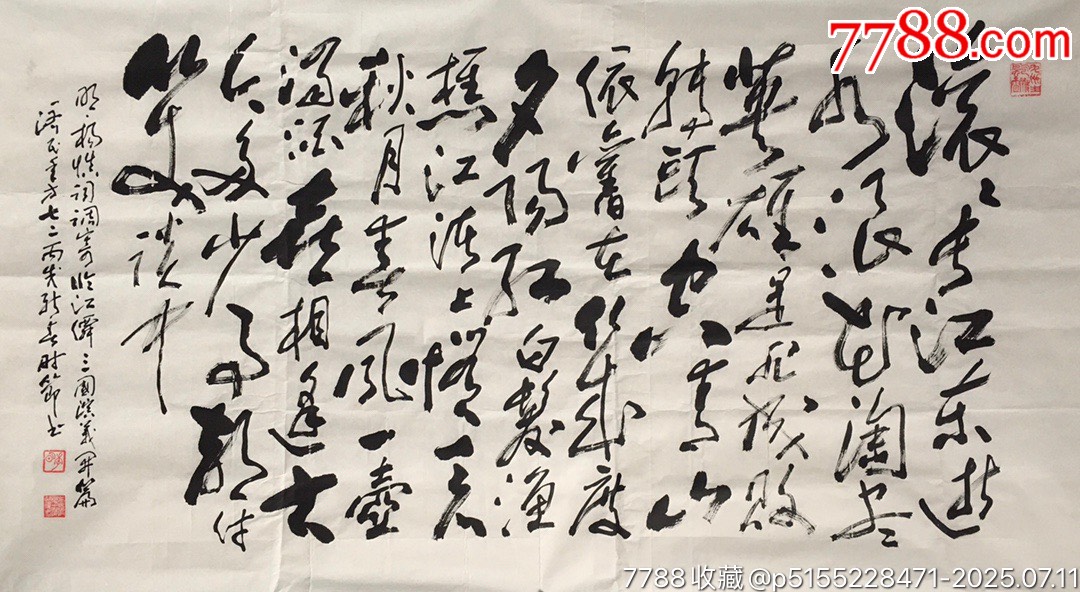 7788.com
滚滚长江东逝
水浪花淘尽
英雄是非成败
转头空青山
依舊在几度
夕陽红白髮渔
樵江渚上惯看
秋月春风一壶
浊酒喜相逢古
今多少事都付
笑谈中
明·杨慎词调寄临江仙三國演义开篇
丙戌新春时節书
7788收藏@p5155228471-2025.07.11